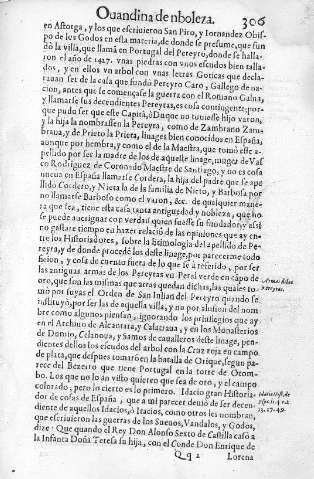 Ouandina de nboleza. 306
en Astorga, y los que escriuieron San Piro, y Fernandez Obis-
po de los Godos en esta materia, de donde se presume, que fun
dò la villa, que llamâ en Portugal del Pereyro, donde se halla-
ron el año de 1427. vnas piedras con vnos escudos bien talla-
dos, y en ellos vn arbol con vnas letras Goticas que decla-
rauan ser de la casa que fundò Pereyro Caro, Gallego de na-
cion, antes que se començasse la guerra con el Romano Galua,
y llamarse sus decendientes Pereyras, es cosa contingente; por-
que pudo ser que este Capitã, ò Duque no tuuiesse hijo varon,
y la hija la nombrassen la Pereyra, como de Zambrano Zam
brana, y de Prieto la Prieta, linages bien conocidos en España,
aunque por hembra, y como el de la Maestra, que tomò este a-
pellido por ser la madre de los de aquelle linage, muger de Vas
co Rodriguez de Coronado Maestre de Santiago, y no es cosa
nueua en España llamarse Cordera, la hija del padre que se ape
llido Cordero, y Nieta la de la familia de Nieto, y Barbosa por
no llamarse Barboso como el varon, &c. de qualquier mane-
ra que sea, tiene esta casa tanta antiguedad y nobleza, que no
se puede aueriguar con verdad quien fuesse su fundador, y assi
no gastare tiempo en hazer relació de las opiniones que ay en-
tre los Historiadores, sobre la Etimologia del apellido de Pe-
reyra, y de donde procedé los deste linage, por parecerme todo
ficion, y cosa de cuento fuera de lo que se à referido, por ser
las antiguas armas de los Pereyras vn Peral verde en cãpo de
oro, que son las mismas que atras quedan dichas, las quales to-
mò por suyas el Orden de San Iulian del Pereyro quando se
instituyò, por ser las de aquella villa, y no por alusion del nom-
bre como algunos piensan, ignorando los priuilegios que ay
en el Archiuo de Alcantara, y Calatraua, y en los Monasterios
de Osmio, Celanoua, y Samos de caualleros deste linage, pen-
dientes dellos los escudos del arbol con la Cruz roja en campo
de plata, que despues tomarõ en la batalla de Orique, segun pa-
rece del Bezerro que tiene Portugal en la torre de Otom-
bo. Los que no lo an visto quieren que sea de oro, y el campo
colorado; pero lo cierto es lo primero. Idacio gran Historia-
dor de cosas de España, que a mi parecer deuiò de ser decen-
diente de aquellos Idacios, ò Itacios, como otros les nombran,
que escriuieron las guerras de los Sueuos, Vandalos, y Godos,
dize: Que quando el Rey Don Alonso Sexto de Castilla casò a
la Infanta Doña Teresa su hija, con el Conde Don Enrique de
Q q 2 Lorena
Armas de los
Pereyras.